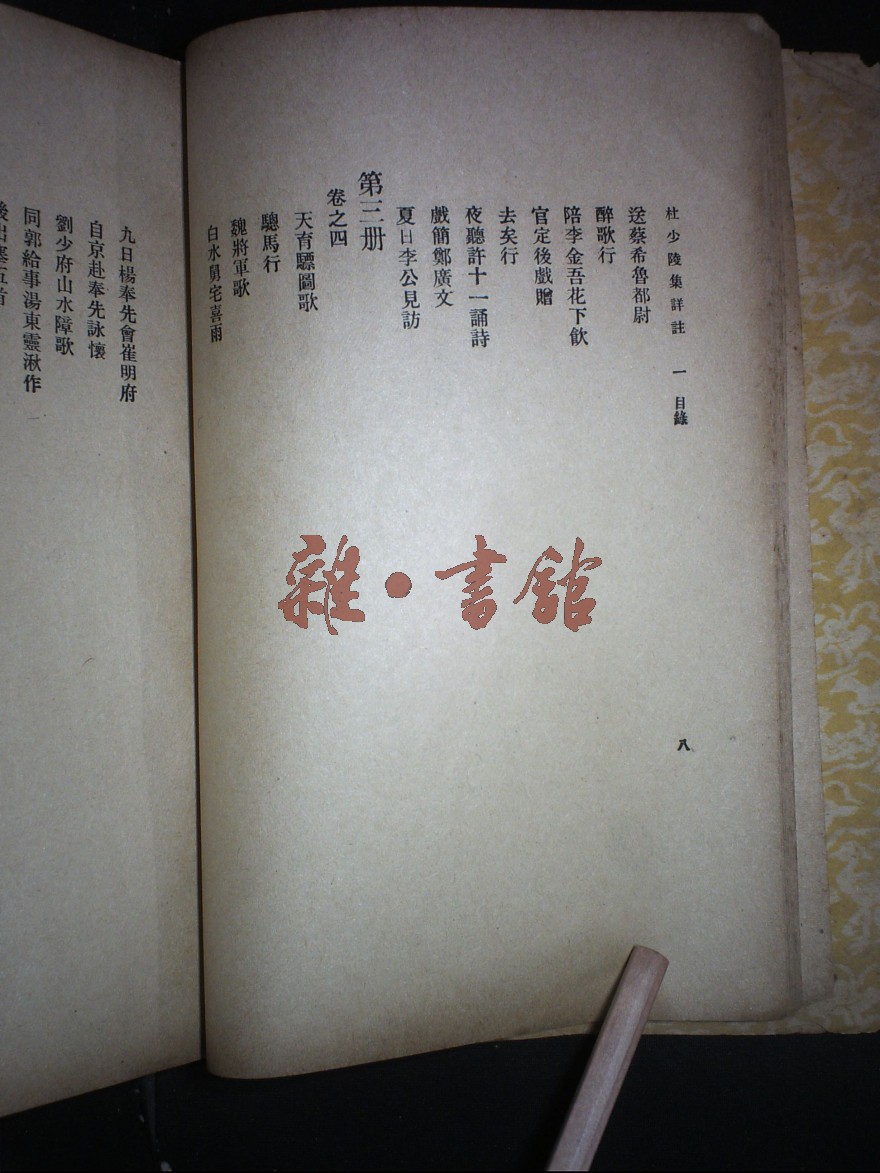 杜少陵集詳註 一 目錄 八
送蔡希魯都尉
醉歌行
陪李金吾花下飲
官定後戲贈
去矣行
夜聽許十一誦詩
戲簡鄭廣文
夏日李公見訪
第三册
卷之四
天育驃圖歌
驄馬行
魏將軍歌
白水舅宅喜雨
九日楊奉先會崔明府
自京赴奉先詠懷
劉少府山水障歌
同郭給事湯東靈湫作
後出塞五首
雜·書館